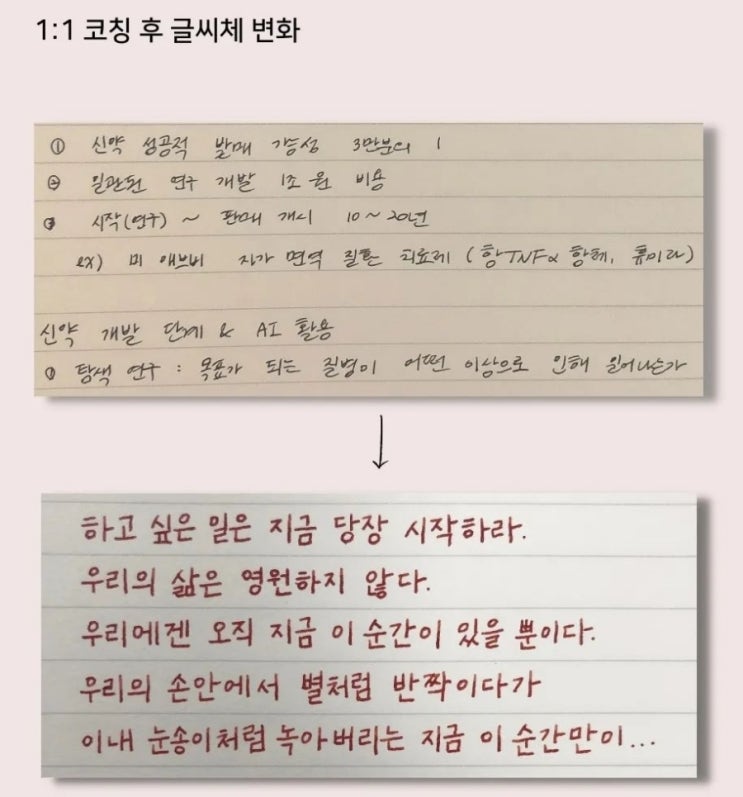 1:1 코칭 후 글씨체 변화
① 신약 성공적 발매 가능성 3만분의 1
② 일관된 연구 개발 1조 원 비용
③ 시작(연구) ~ 판매 개시 10~20년
ex) 미 애브비 자가 면역 질환 치료제 (항TNFα 항체, 휴미라)
신약 개발 단계 & AI 활용
① 탐색 연구 : 목표가 되는 질병이 어떤 이상으로 인해 일어나는가
하고 싶은 일은 지금 당장 시작하라.
우리의 삶은 영원하지 않다.
우리에겐 오직 지금 이 순간이 있을 뿐이다.
우리의 손안에서 별처럼 반짝이다가
이내 눈송이처럼 녹아버리는 지금 이 순간만이...